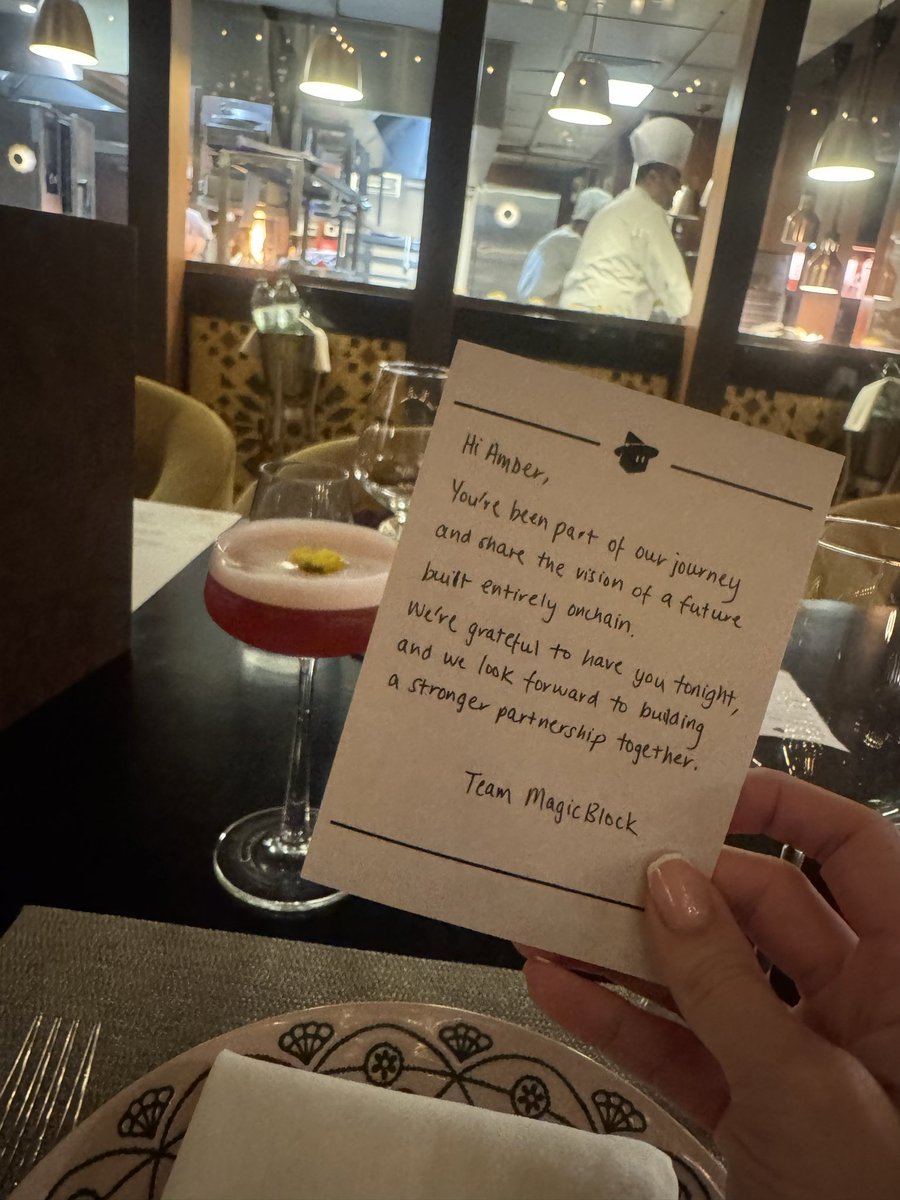 Hi Amber,
You're been part of our journey
and share the vision of a future
built entirely onchain.
We're grateful to have you tonight,
and we look forward to building
a stronger partnership together.
Team MagicBlock